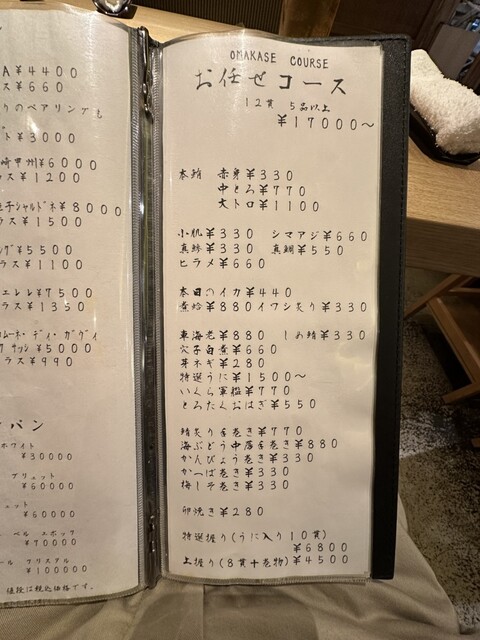 A ¥4400
ス ¥660
りのペアリングも
ト ¥3000
崎甲州 ¥6000
ラス ¥1200
シャルドネ ¥8000
ラス ¥1500
グ ¥5500
ラス ¥1100
エレレ ¥7500
ラス ¥1350
コムーネ・ディ・ガヴィ
サッシ ¥5000
ラス ¥990
パン
ホワイト
¥30000
ブリュット
¥60000
ュット
¥60000
・ベル エポック
¥70000
ール クリスタル
¥100000
値段は税込価格です。
OMAKASE COURSE
お任せコース
12貫 5品以上
¥17000~
本鮪 赤身 ¥330
中とろ ¥770
大トロ ¥1100
小肌 ¥330 シマアジ ¥660
真鯵 ¥330 真鯛 ¥550
ヒラメ ¥660
本日のイカ ¥440
煮蛤 ¥880 イワシ炙り ¥330
車海老 ¥880 しめ鯖 ¥330
穴子白煮 ¥660
芽ネギ ¥280
特選うに ¥1500~
いくら軍艦 ¥770
とろたくおはぎ ¥550
鯖炙り手巻き ¥770
海ぶどう中落手巻き ¥880
かんぴょう巻き ¥330
かっぱ巻き ¥330
梅しそ巻き ¥330
卵焼き ¥280
特選握り(うに入り10貫)
¥6800
上握り(8貫+巻物) ¥4500